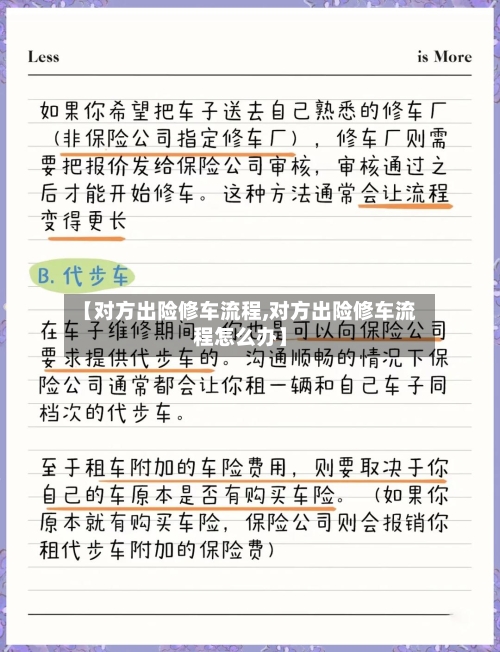 Less is More
如果你希望把车子送去自己熟悉的修车厂
（非保险公司指定修车厂），修车厂则需
要把报价发给保险公司审核，审核通过之
后才能开始修车。这种方法通常会让流程
变得更长
B. 代步车
【对方出险修车流程,对方出险修车流
程怎么办】
在车子维修期间，你也是可以向保险公司
要求提供代步车的。沟通顺畅的情况下保
险公司通常都会让你租一辆和自己车子同
档次的代步车。
至于租车附加的车险费用，则要取决于你
自己的车原本是否有购买车险。（如果你
原本就有购买车险，保险公司则会报销你
租代步车附加的保险费）